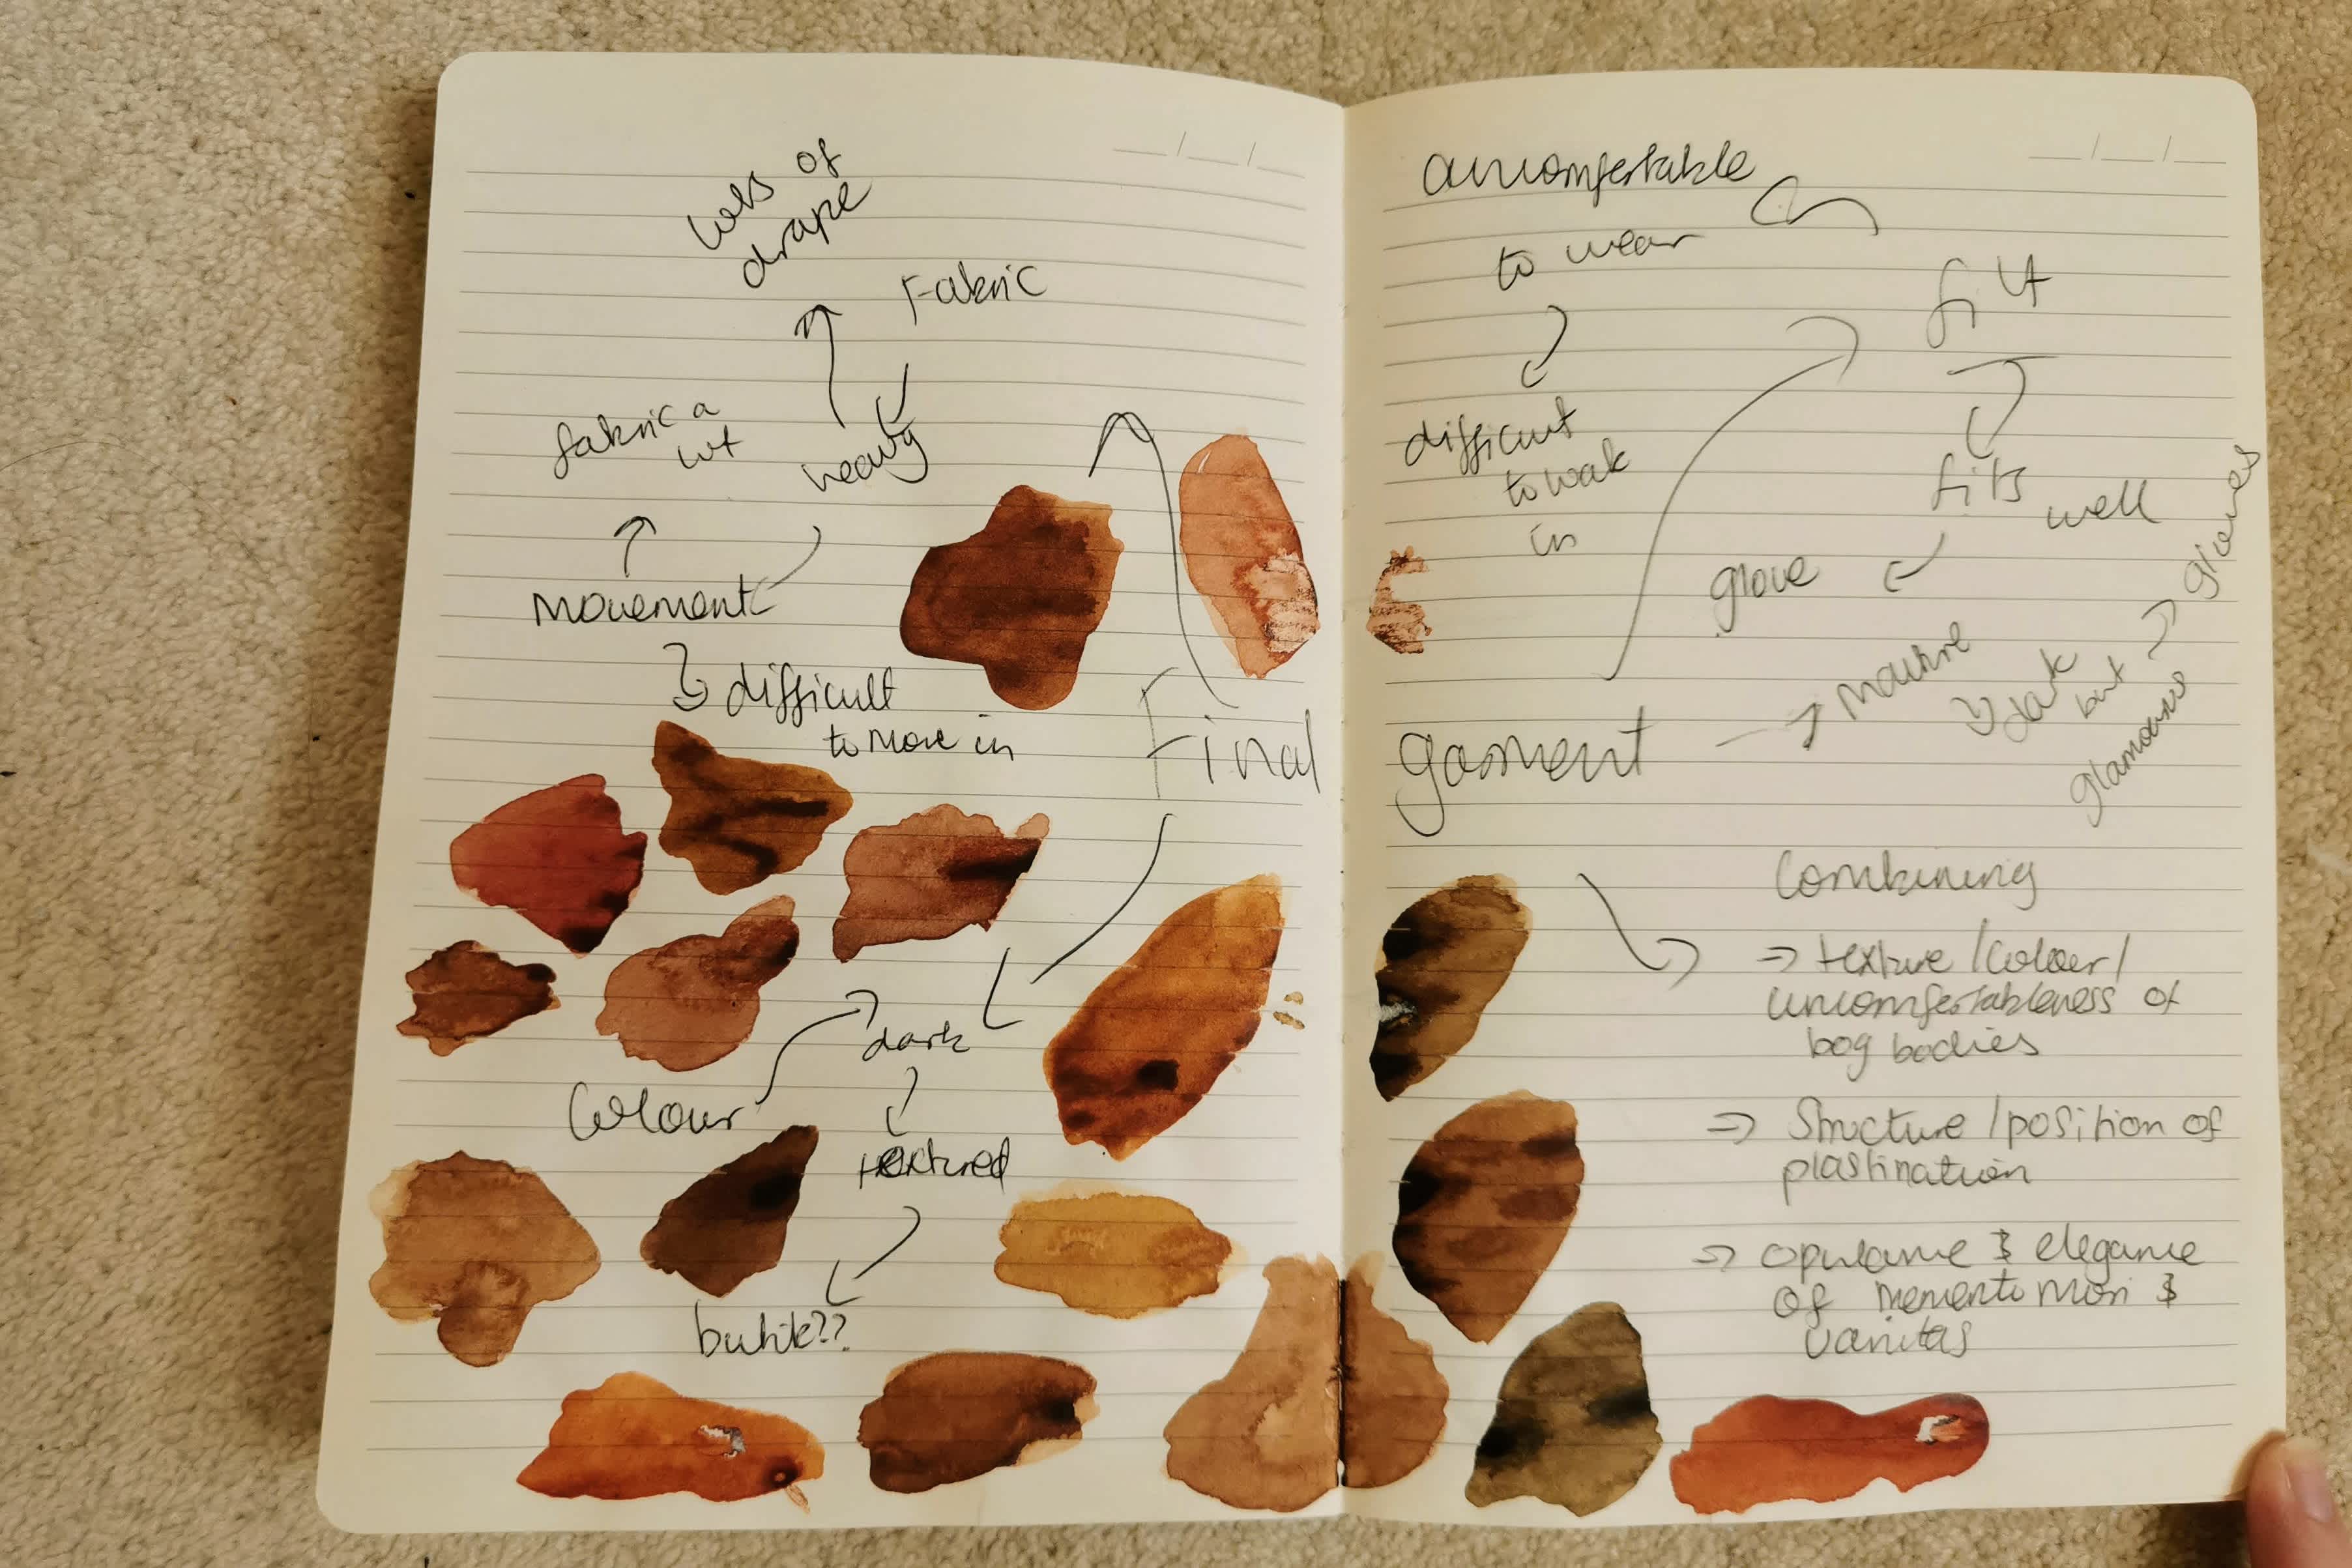 lots of
drape
Fabric
fabric a
lot
heavy
movement
difficult
to move in
Final
dark
Colour
textured
uncomfertable
to wear
fit
difficult
to walk
in
fits
well
glove
gloves
mature
dark
but
glamourous
garment
Combining
⇒ texture / Colour /
uncomfertableness of
bog bodies
⇒ Structure / position of
plastination
⇒ opulance & elegance
of memento mori &
vanitas